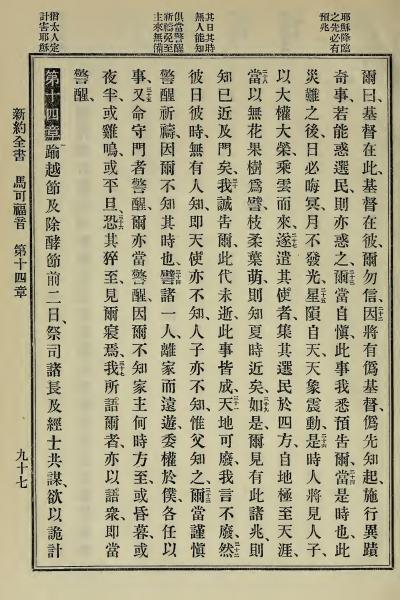 耶穌降臨
之先必有
預兆
其日其時
無人能知
俱當警醒
祈禱免至
主來無備
猶太人定
計害耶穌
爾曰基督在此、基督在彼、爾勿信、因將有偽基督、偽先知起、施行異蹟
奇事、若能惑選民、則亦惑之、爾當自慎、此事我悉預告爾、當是時也、此
災難之後、日必晦冥、月不發光、星隕自天、天象震動、是時人將見人子、
以大權大榮、乘雲而來、遂遣其使者、集其選民於四方、自地極至天涯、
當以無花果樹爲譬、枝柔葉萌、則知夏時近矣、如是、爾見有此諸兆、則
知已近及門矣、我誠告爾、此代未逝、此事皆成、天地可廢、我言不廢、然
彼日彼時、無有人知、即天使亦不知、人子亦不知、惟父知之、爾當謹慎
警醒祈禱、因爾不知其時也、譬諸一人、離家而遠遊、委權於僕、各任以
事、又命守門者警醒、爾亦當警醒、因爾不知家主何時方至、或昏暮、或
夜半、或雞鳴、或平旦、恐其猝至、見爾寢焉、我所語爾者、亦以語衆、即當
警醒、
第十四章 踰越節及除酵節前二日、祭司諸長及經士共謀、欲以詭計
新約全書 馬可福音 第十四章 九十七